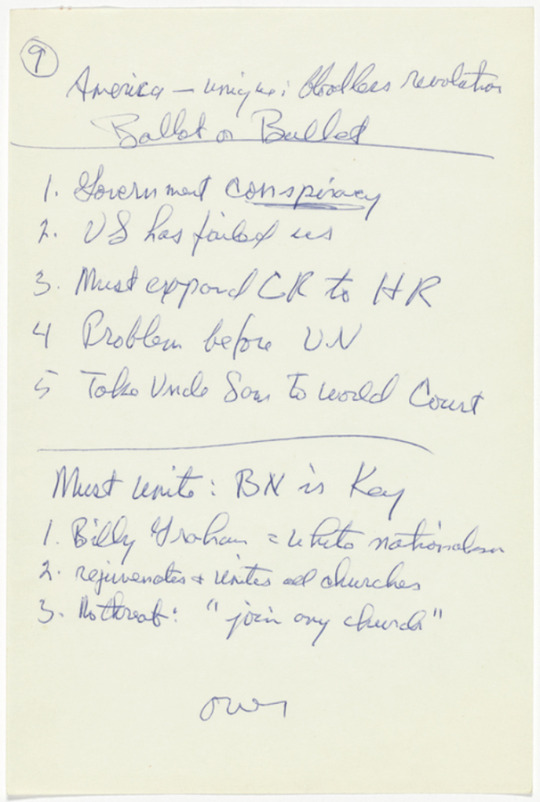 9
America – unique: bloodless revolution
Ballot or Bullet
1. Government conspiracy
2. US has failed us
3. Must expand CR to HR
4 Problem before U.N
5 Take Uncle Sam to world Court
Must unite: BN is Key
1. Billy Graham = white nationalism
2. rejuvenates & unites all churches
3. No threat: "join any church"
over